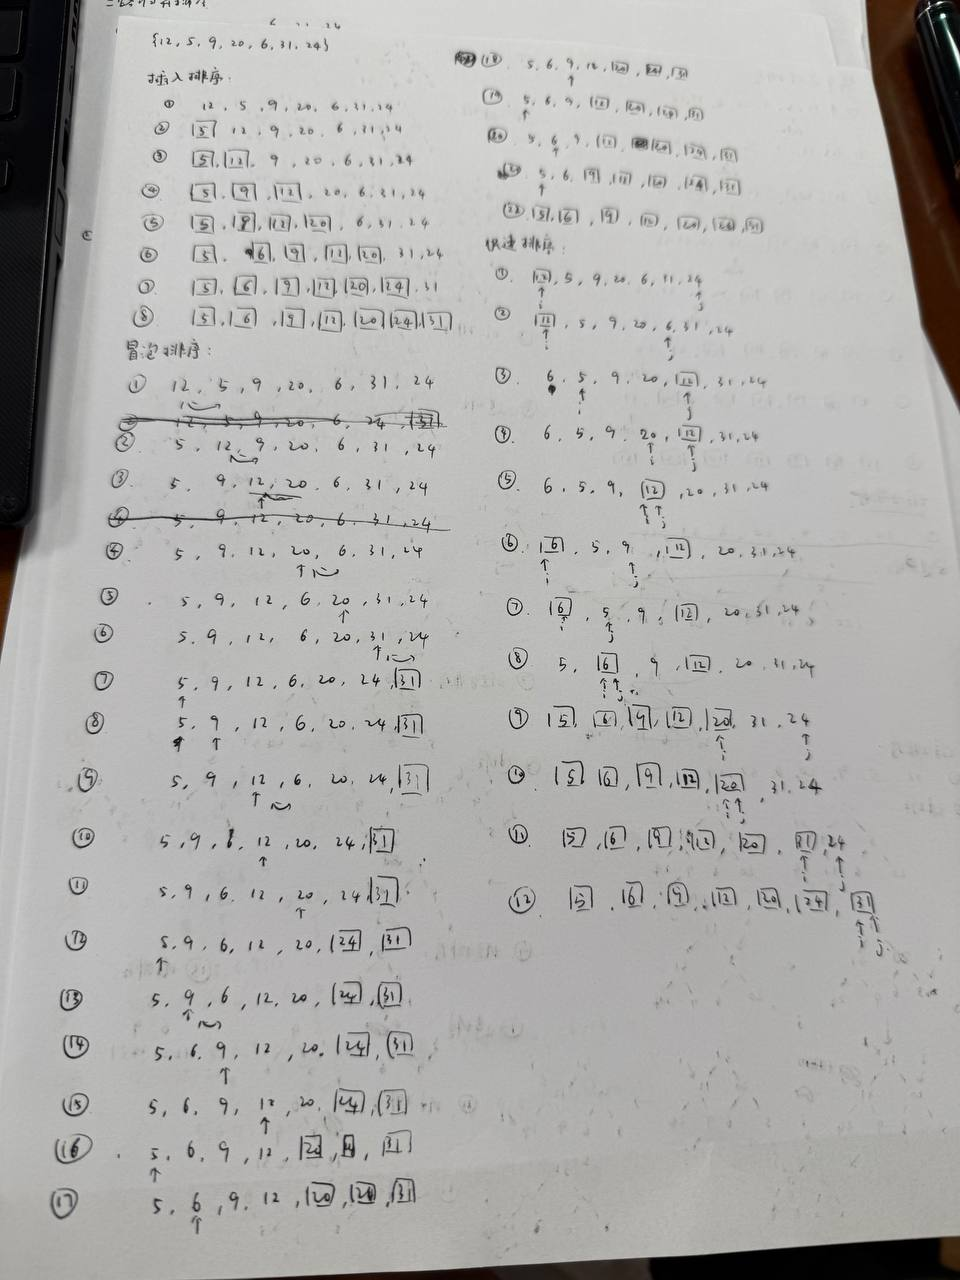 {12, 5, 9, 20, 6, 31, 24}
插入排序:
① 12, 5, 9, 20, 6, 31, 24
② 5 12, 9, 20, 6, 31, 24
③ 5, 12, 9, 20, 6, 31, 24
④ 5, 9, 12, 20, 6, 31, 24
⑤ 5, 9, 12, 20, 6, 31, 24
⑥ 5, 6, 9, 12, 20, 31, 24
⑦ 5, 6, 9, 12, 20, 24, 31
⑧ 5, 6, 9, 12, 20, 24, 31
冒泡排序:
① 12, 5, 9, 20, 6, 31, 24
② 12, 5, 9, 20, 6, 24, 31
② 5, 12, 9, 20, 6, 31, 24
③ 5, 9, 12, 20, 6, 31, 24
④ 5, 9, 12, 20, 6, 31, 24
④ 5, 9, 12, 20, 6, 31, 24
⑤ 5, 9, 12, 6, 20, 31, 24
⑥ 5, 9, 12, 6, 20, 31, 24
⑦ 5, 9, 12, 6, 20, 24, 31
⑧ 5, 9, 12, 6, 20, 24, 31
⑨ 5, 9, 12, 6, 20, 24, 31
⑩ 5, 9, 6, 12, 20, 24, 31
⑪ 5, 9, 6, 12, 20, 24, 31
⑫ 5, 9, 6, 12, 20, 24, 31
⑬ 5, 9, 6, 12, 20, 24, 31
⑭ 5, 6, 9, 12, 20, 24, 31
⑮ 5, 6, 9, 12, 20, 24, 31
⑯ 5, 6, 9, 12, 20, 24, 31
⑰ 5, 6, 9, 12, 20, 24, 31
⑱ 5, 6, 9, 12, 20, 24, 31
⑲ 5, 6, 9, 12, 20, 24, 31
⑳ 5, 6, 9, 12, 20, 24, 31
5, 6, 9, 12, 20, 24, 31
㉒ 5, 6, 9, 12, 20, 24, 31
快速排序:
① 12, 5, 9, 20, 6, 31, 24
i j
② 12, 5, 9, 20, 6, 31, 24
i j
③ 6, 5, 9, 20, 12, 31, 24
i j
④ 6, 5, 9, 20, 12, 31, 24
i j
⑤ 6, 5, 9, 12, 20, 31, 24
i j
⑥ 6, 5, 9, 12, 20, 31, 24
i j
⑦ 6, 5, 9, 12, 20, 31, 24
i j
⑧ 5, 6, 9, 12, 20, 31, 24
i j
⑨ 5, 6, 9, 12, 20, 31, 24
i j
⑩ 5, 6, 9, 12, 20, 31, 24
i j
⑪ 5, 6, 9, 12, 20, 31, 24
i j
⑫ 5, 6, 9, 12, 20, 24, 31
i j